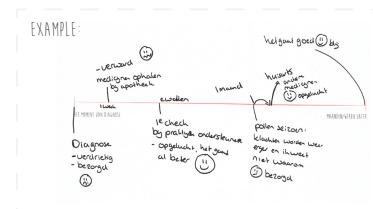 EXAMPLE:
-verward
medicijnen ophalen
bij apotheek
1 week
2 weken
1 maand
huisarts
→ andere
medicijnen
opgelucht
het gaat goed
blij
HET MOMENT VAN DIAGNOSE
MAANDEN/JAREN LATER
Diagnose
-verdrietig
-bezorgd
1e check
bij praktijk ondersteuner
- opgelucht, het gaat
al beter
pollen seizoen:
klachten worden weer
erger en ik weet
niet waarom
bezorgd